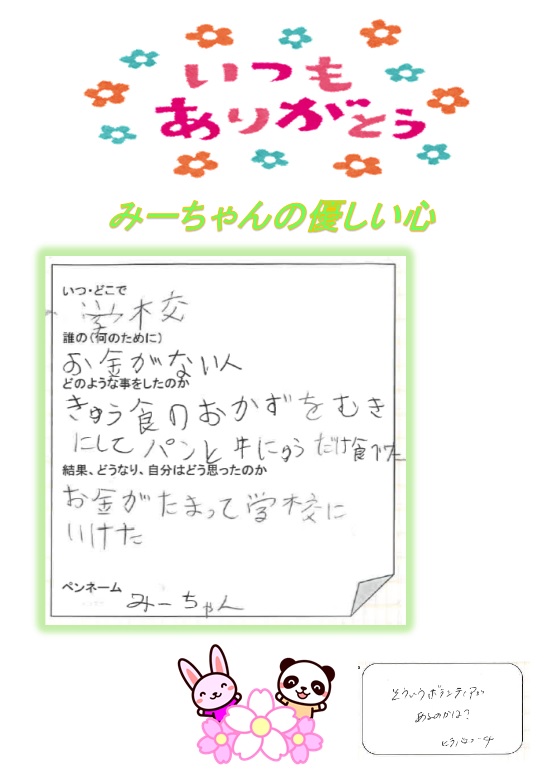 いつも
ありがとう
みーちゃんの優しい心
いつ・どこで
学校
誰の(何のために)
お金がない人
どのような事をしたのか
きゅう食のおかずをむき
にして パンと牛にゅうだけ食べた
結果、どうなり、自分はどう思ったのか
お金がたまって学校に
いけた
ペンネーム
みーちゃん
そういうボランティアが
あるのかは?